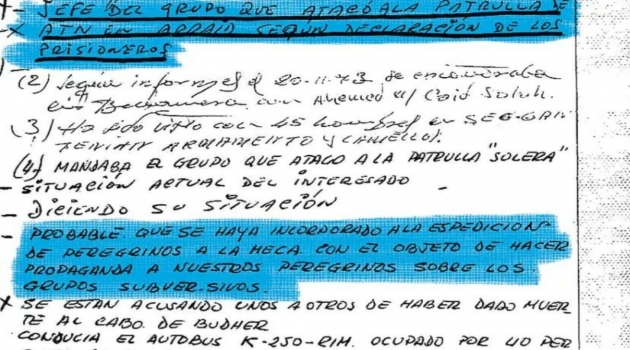 - JEFE DEL GRUPO QUE ATACÓ A LA PATRULLA DE
-X ATN EN ARRAID SEGÚN DECLARACIÓN DE LOS
PRISIONEROS
(2) Según informes el 20-11-73 se encontraba
en con Ahemed u/ Caid Salah.
(3) Ha sido visto con 45 hombres en
TENIAN ARMAMENTO Y CAMELLOS.
(4) MANDABA EL GRUPO QUE ATACO A LA PATRULLA "SOLERA"
- SITUACIÓN ACTUAL DEL INTERESADO
- DICIENDO SU SITUACIÓN
- PROBABLE QUE SE HAYA INCORDORADO A LA ESPEDICION
DE PEREGRINOS A LA MECA. CON EL OBJETO DE HACER
PROPAGANDA A NUESTROS PEREGRINOS SOBRE LOS
GRUPOS SUBVERSIVOS.
X SE ESTAN ACUSANDO UNOS A OTROS DE HABER DADO MUER
TE AL CABO DE BUDHER
CONDUCIA EL AUTOBUS K-250-RIM. OCUPADO POR 40 PER